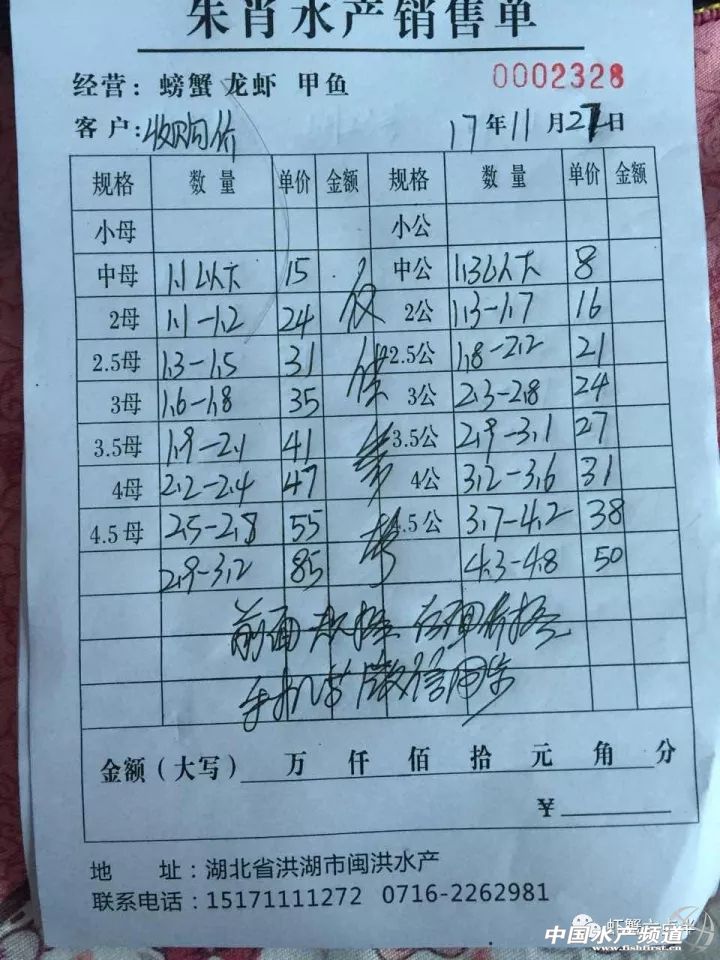 朱肖水产销售单
经营：螃蟹 龙虾 甲鱼 0002328
客户：收购价 17年11月27日
规格 数量 单价 金额 规格 数量 单价 金额
小母 小公
中母 1.1以下 15 中公 1.3以下 8
2母 1.1-1.2 24 2公 1.3-1.7 16
2.5母 1.3-1.5 31 2.5公 1.8-2.2 21
3母 1.6-1.8 35 3公 2.3-2.8 24
3.5母 1.9-2.1 41 3.5公 2.9-3.1 27
4母 2.2-2.4 47 4公 3.2-3.6 31
4.5母 2.5-2.8 55 4.5公 3.7-4.2 38
2.9-3.2 85 4.3-4.8 50
仅供参考
前面规格 后面价格
手机号微信同步
金额（大写） 万 仟 佰 拾 元 角 分
¥
地 址：湖北省洪湖市闽洪水产
联系电话：15171111272 0716-2262981
虾蟹六点半
中国水产频道
www.fishfirst.cn